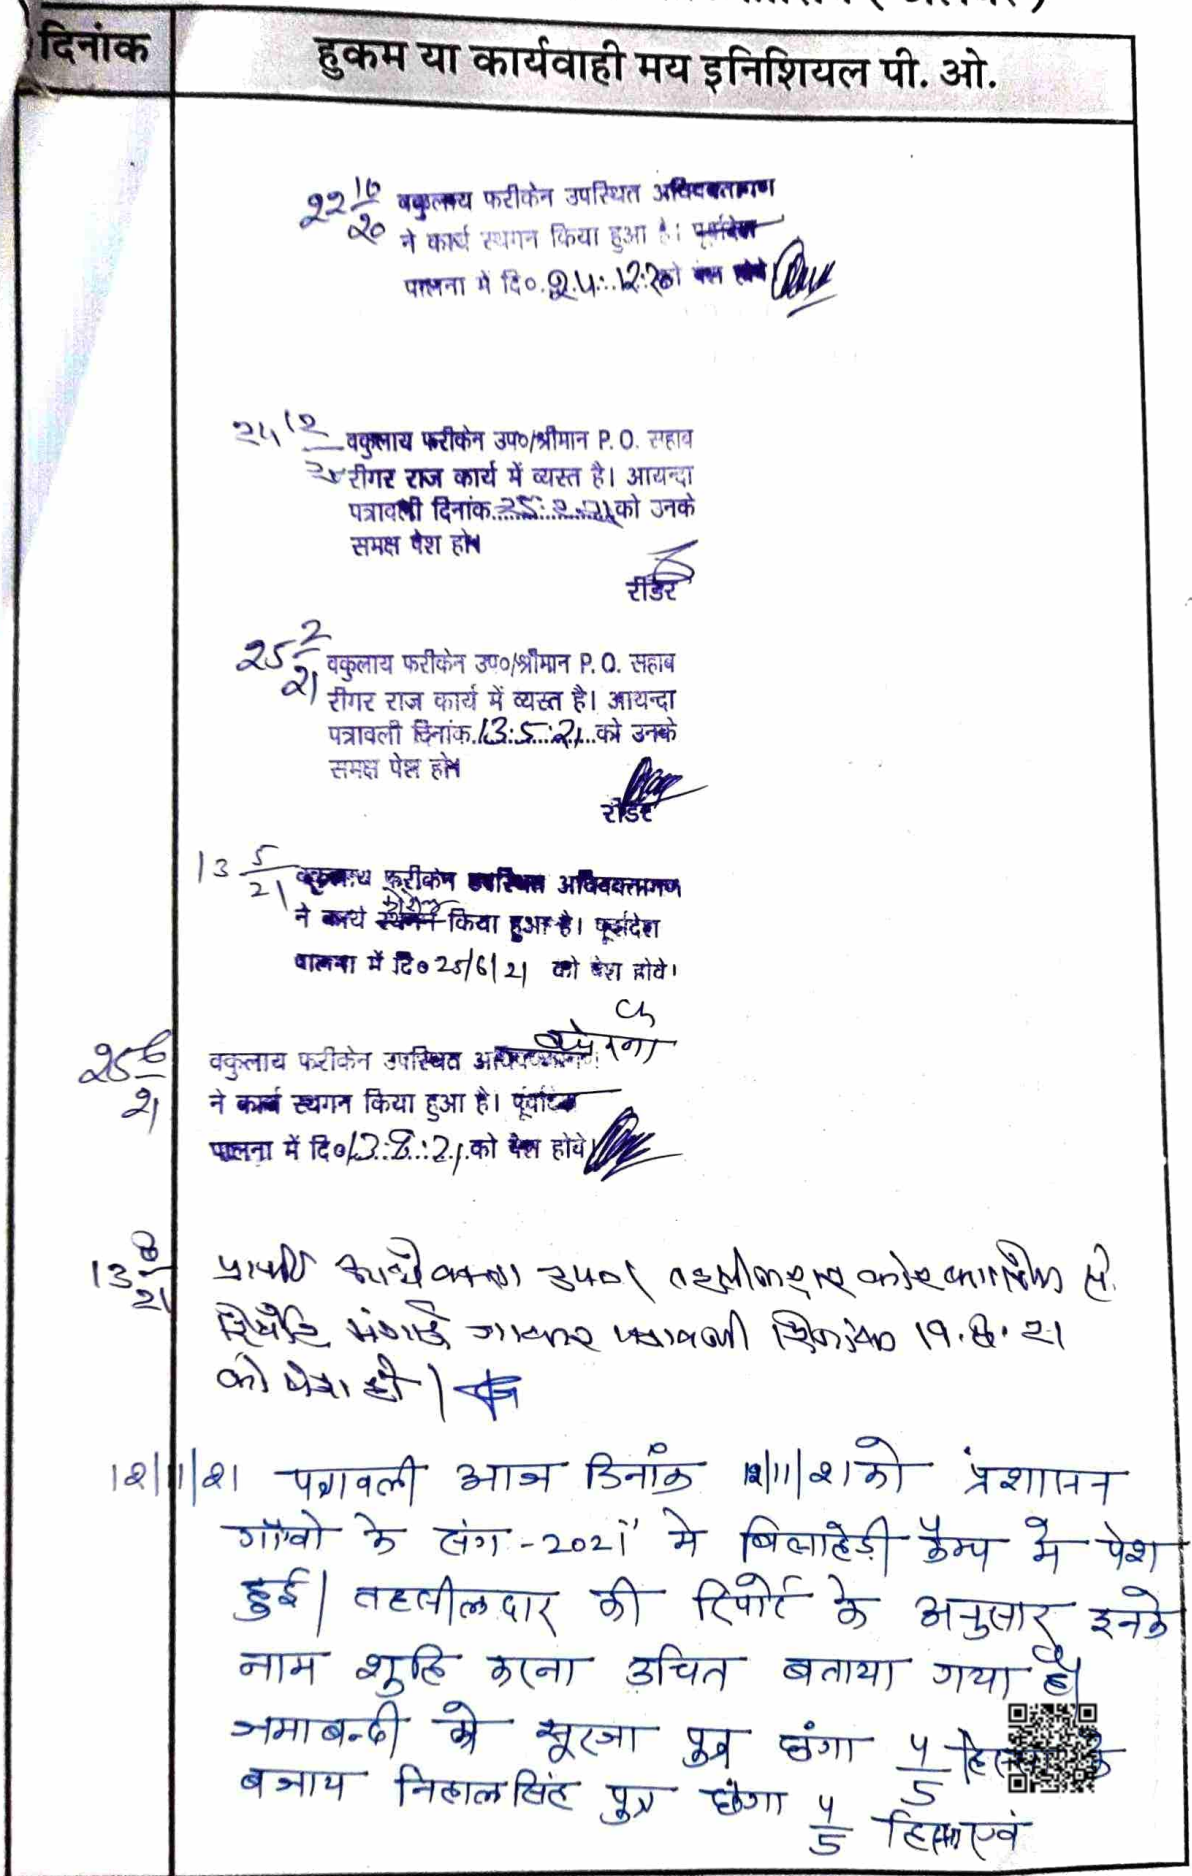 दिनांक
हुकम या कार्यवाही मय इनिशियल पी. ओ.
22 10/20 वकुलाय फरीकेन उपस्थित अधिवक्तागण
ने कार्य स्थगन किया हुआ है। पूर्वादेश
पालना में दि०.24.12.20को पेश होवे
24 12/20 वकुलाय फरीकेन उप०/श्रीमान P.O. सहाब
रीगर राज कार्य में व्यस्त है। आयन्दा
पत्रावली दिनांक 25.2.21 को उनके
समक्ष पेश हो।
रीडर
25 2/21 वकुलाय फरीकेन उप०/श्रीमान P.O. सहाब
रीगर राज कार्य में व्यस्त है। आयन्दा
पत्रावली दिनांक.13.5.21.को उनके
समक्ष पेश हो।
रीडर
13 5/21 वकुलाय फरीकेन उपस्थित अधिवक्तागण
ने कार्य स्थगन किया हुआ है। पूर्वादेश
पालना में दि० 25/6/21 को पेश होवे।
25 6/21 वकुलाय फरीकेन उपस्थित
ने कार्य स्थगन किया हुआ है। पूर्वादेश
पालना में दि०13.8.21.को पेश होवे।
13 8/21 उप०। तहसीलदार से
रिपोर्ट मंगाई जाकर पत्रावली दिनांक 19.8.21
को पेश हो।
12/11/21 पत्रावली आज दिनांक 12/11/21 को प्रशासन
गाँवो के संग -2021" मे बिलाहेडी कैम्प मे पेश
हुई। तहसीलदार की रिपोर्ट के अनुसार इनके
नाम शुद्धि करना उचित बताया गया है।
जमाबन्दी मे सूरजा पुत्र छंगा 4/5 के
बजाय निहालसिंह पुत्र छंगा 4/5 हिस्सा एवं